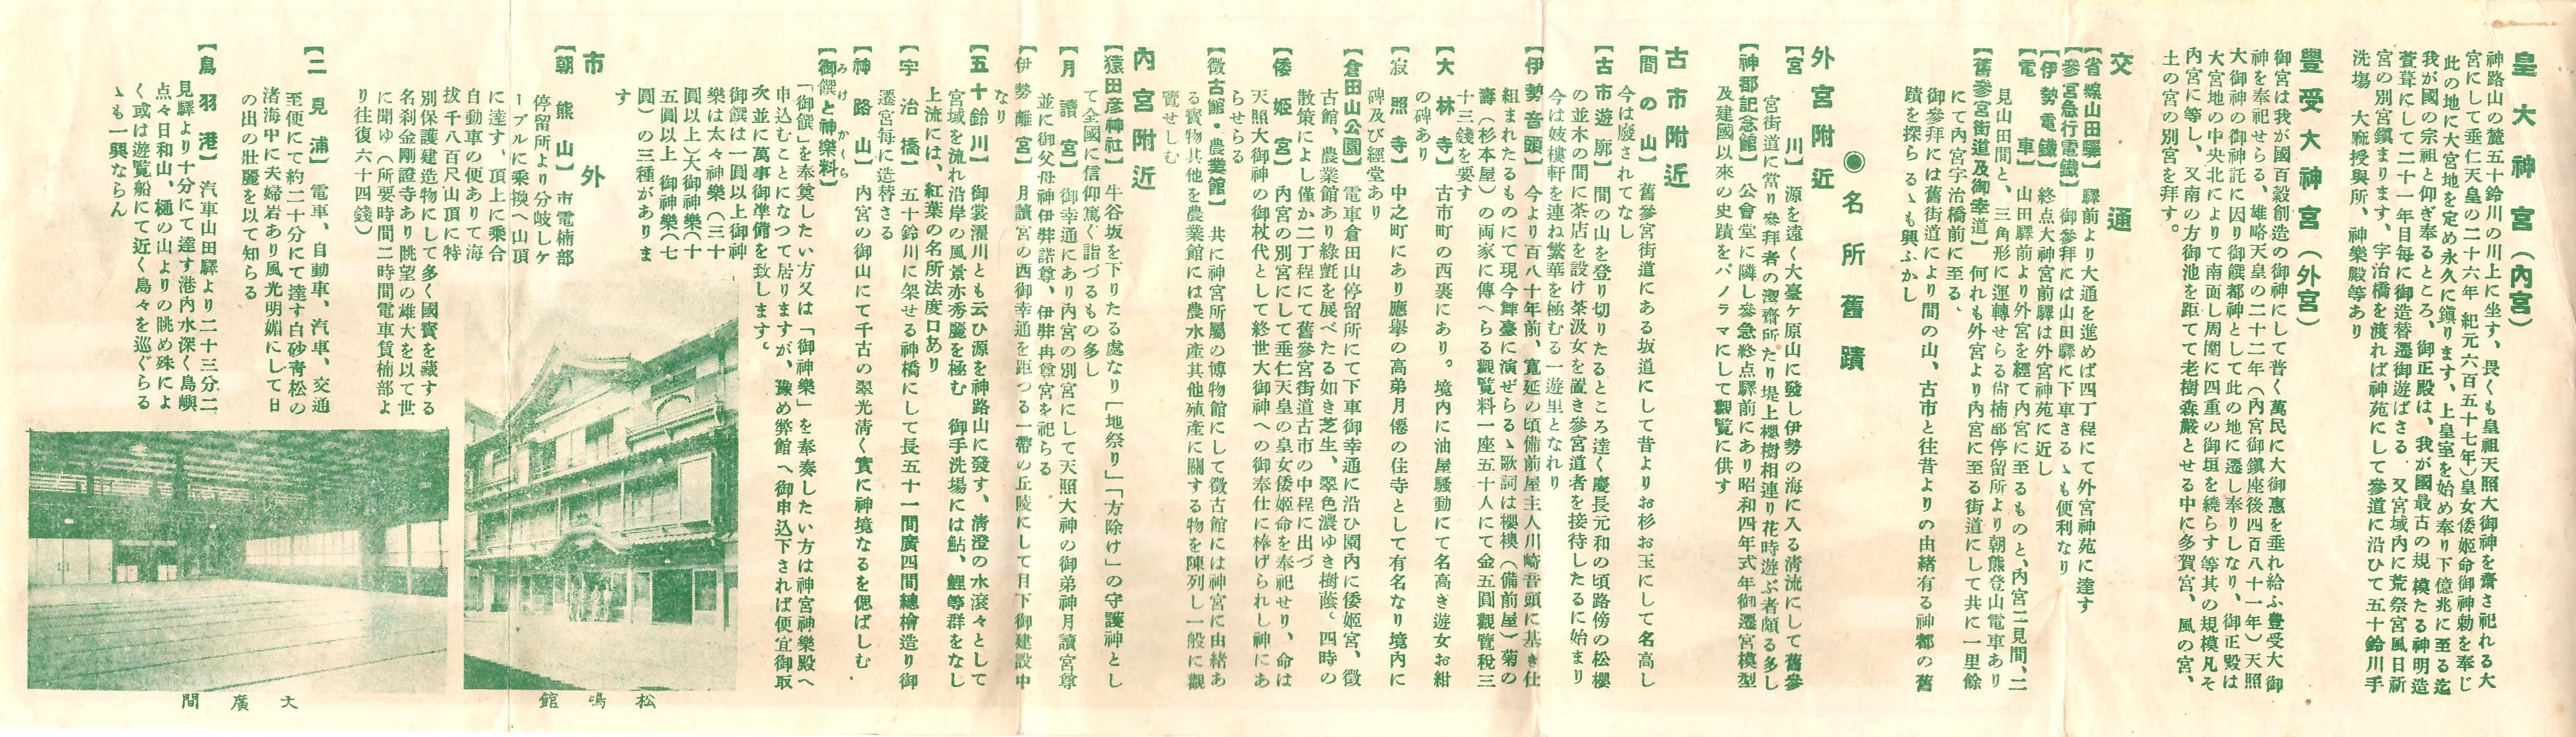 皇大神宮(內宮)
神路山の麓五十鈴川の川上に坐す、畏くも皇祖天照大御神を齋き祀れる大
宮にして垂仁天皇の二十六年(紀元六百五十七年)皇女倭姬命御神勅を奉じ
此の地に大宮地を定め永久に鎭ります、上皇室を始め奉り下億兆に至る迄
我が國の宗祖と仰ぎ奉るところ、御正殿は、我が國最古の規模たる神明造
萱葺にして二十一年目每に御造替遷御遊ばさる、又宮域內に荒祭宮風日祈
宮の別宮鎭まります、宇治橋を渡れば神苑にして參道に沿ひて五十鈴川手
洗場、大麻授與所、神樂殿等あり
豐受大神宮(外宮)
御宮は我が國百穀創造の御神にして普く萬民に大御惠を垂れ給ふ豊受大御
神を奉祀せらる、雄略天皇の二十二年(內宮御鎭座後四百八十一年)天照
大御神の御神託に因り御饌都神として此の地に遷し奉りしなり、御正殿は
大宮地の中央北によりて南面し周圍に四重の御垣を繞らす等其の規模凡そ
內宮に等し、又南の方御池を距てて老樹森嚴とせる中に多賀宮、風の宮、
土の宮の別宮を拜す。
交通
【省線山田驛】 驛前より大通を進めば四丁程にて外宮神苑に達す
【參宮急行電鐵】 御參拜には山田驛に下車さるゝも便利なり
【伊勢電鐵】 終点大神宮前驛は外宮神苑に近し
【電車】 山田驛前より外宮を經て內宮に至るものと、內宮二見間、二
見山田間と、三角形に運轉せらる尙楠部停留所より朝熊登山電車あり
【舊參宮街道及御幸道】 何れも外宮より內宮に至る街道にして共に一里餘
にて內宮宇治橋前に至る、
御參拜には舊街道により間の山、古市と往昔よりの由緖有る神都の舊
蹟を探らるゝも興ふかし
◉名所舊蹟
外宮附近
【宮川】 源を遠く大臺ケ原山に發し伊勢の海に入る淸流にして舊參
宮街道に當り參拜者の潔齋所たり堤上櫻樹相連り花時遊ぶ者頗る多し
【神都記念館】 公會堂に隣し參急終点驛前にあり昭和四年式年御遷宮模型
及建國以來の史蹟をパノラマにして觀覽に供す
古市附近
【間の山】 舊參宮街道にある坂道にして昔よりお杉お玉にして名高し
今は廢されてなし
【古市遊廓】 間の山を登り切りたるところ達く慶長元和の頃路傍の松櫻
の並木の間に茶店を設け茶汲女を置き參宮道者を接待したるに始まり
今は妓樓軒を連ね繁華を極むる一遊里となれり
【伊勢音頭】 今より百八十年前、寬延の頃備前屋主人川崎音頭に基き仕
組まれたるものにて現今舞臺に演ぜらるゝ歌詞は櫻襖(備前屋)菊の
壽(杉本屋)の兩家に傳へらる觀覽料一座五十人にて金五圓觀覽稅三
十三錢を要す
【大林寺】 古市町の西裏にあり。境內に油屋騷動にて名高き遊女お紺
の碑あり
【寂照寺】 中之町にあり應擧の高弟月僊の住寺として有名なり境內に
碑及び經堂あり
【倉田山公園】 電車倉田山停留所にて下車御幸通に沿ひ園內に倭姬宮、徵
古館、農業館あり綠氈を展べたる如き芝生、翠色濃ゆき樹蔭、四時の
散策によし僅か二丁程にて舊參宮街道古市の中程に出づ
【倭姬宮】 內宮の別宮にして垂仁天皇の皇女倭姬命を奉祀せり、命は
天照大御神の御杖代として終世大御神への御奉仕に棒げられし神にあ
らせらる
【徵古館・農業館】 共に神宮所屬の博物館にして徵古館には神宮に由緖あ
る寶物其他を農業館には農水產其他殖產に關する物を陳列し一般に觀
覽せしむ
內宮附近
【猿田彥神社】 牛谷坂を下りたる處なり「地祭り」「方除け」の守護神とし
て全國に信仰篤く詣づるもの多し
【月讀宮】 御幸通にあり內宮の別宮にして天照大神の御弟神月讀宮尊
並に御父母神伊弉諾尊、伊弉冉尊宮を祀らる
【伊勢離宮】 月讀宮の西御幸通を距つる一帶の丘陵にして目下御建設中
なり
【五十鈴川】 御裳濯川とも云ひ源を神路山に發す、淸澄の水滾々として
宮域を流れ沿岸の風景亦秀麗を極む 御手洗場には鮎、鯉等群をなし
上流には、紅葉の名所法度口あり
【宇治橋】 五十鈴川に架せる神橋にして長五十一間廣四間總檜造り御
遷宮每に造替さる
【神路山】 內宮の御山にて千古の翠光淸く實に神境なるを偲ばしむ
【御饌と神樂料】
みけ かぐら
「御饌」を奉奠したい方又は「御神樂」を奉奏したい方は神宮神樂殿へ
申込むことになつて居りますが、豫め弊館へ御申込下されば便宜御取
次並に萬事御準備を致します。
御饌は一圓以上御神
樂は太々神樂(三十
圓以上)大御神樂(十
五圓以上 御神樂(七
圓)の三種がありま
す
市外
【朝熊山】 市電楠部
停留所より分岐しケ
ーブルに乘換へ山頂
に達す、頂上に乘合
自動車の便ありて海
拔千八百尺山頂に特
別保護建造物にして多く國寶を藏する
名刹金剛證寺あり眺望の雄大を以て世
に聞ゆ(所要時間二時間電車賃楠部よ
り往復六十四錢)
【二見浦】 電車、自動車、汽車、交通
至便にて約二十分にて達す白砂靑松の
渚海中に夫婦岩あり風光明媚にして日
の出の壯麗を以て知らる
【鳥羽港】 汽車山田驛より二十三分二
見驛より十分にて達す港內水深く島嶼
点々日和山、樋の山よりの眺め殊によ
く或は遊覽船にて近く島々を巡ぐらる
ゝも一興ならん
松嶋館
大廣間